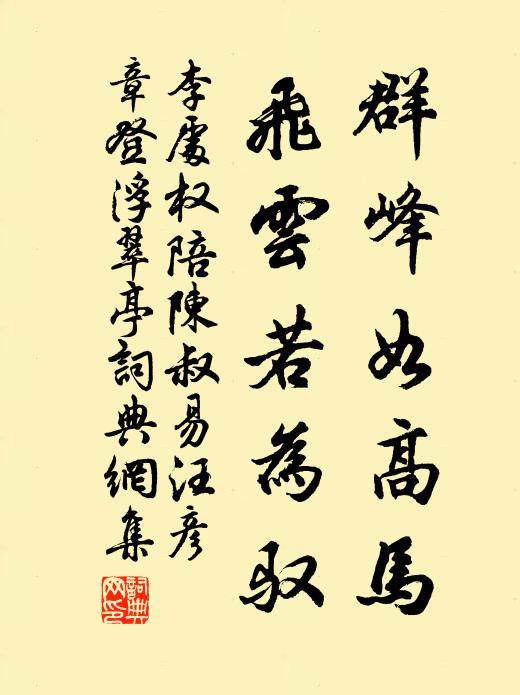 群峰如高馬
飛雲若為馭
李處权陪陳叔易汪彦
章登浮翠亭詞典網集
詞典
网印